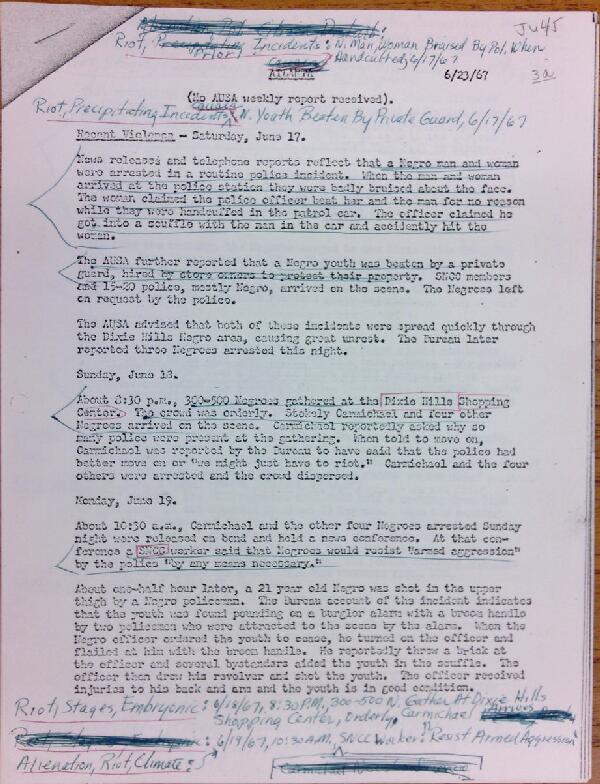 JU45
Riot, Prior Incidents: N. Man, Woman Bruised By Pol. When
Handcuffed, 6/17/67
ATLANTA
6/23/67
3a
(No AUSA weekly report received).
Riot, Precipitating Incidents, N. Youth Beaten By Private Guard, 6/17/67
Recent Violence - Saturday, June 17.
News releases and telephone reports reflect that a Negro man and woman
were arrested in a routine police incident. When the man and woman
arrived at the police station they were badly bruised about the face.
The woman claimed the police officer beat her and the man for no reason
while they were handcuffed in the patrol car. The officer claimed he
got into a scuffle with the man in the car and accidently hit the
woman.
The AUSA further reported that a Negro youth was beaten by a private
guard, hired by store owners to protect their property. SNCC members
and 15-20 police, mostly Negro, arrived on the scene. The Negroes left
on request by the police.
The AUSA advised that both of these incidents were spread quickly through
the Dixie Hills Negro area, causing great unrest. The Bureau later
reported three Negroes arrested this night.
Sunday, June 18.
About 8:30 p.m., 300-500 Negroes gathered at the Dixie Hills Shopping
Center. The crowd was orderly. Stokely Carmichael and four other
Negroes arrived on the scene. Carmichael reportedly asked why so
many police were present at the gathering. When told to move on,
Carmichael was reported by the Bureau to have said that the police had
better move on or "we might just have to riot." Carmichael and the four
others were arrested and the crowd dispersed.
Monday, June 19.
About 10:30 a.m., Carmichael and the other four Negroes arrested Sunday
night were released on bond and held a news conference. At that con-
ference a SNCC worker said that Negroes would resist "armed aggression"
by the police "by any means necessary."
About one-half hour later, a 21 year old Negro was shot in the upper
thigh by a Negro policeman. The Bureau account of the incident indicates
that the youth was found pounding on a burglar alarm with a broom handle
by two policemen who were attracted to the scene by the alarm. When the
Negro officer ordered the youth to cease, he turned on the officer and
flailed at him with the broom handle. He reportedly threw a brick at
the officer and several bystanders aided the youth in the scuffle. The
officer then drew his revolver and shot the youth. The officer received
injuries to his back and arm and the youth is in good condition.
Riot, Stages, Embryonic: 6/18/67, 8:30 P.M., 300-500 N. Gather At Dixie Hills
Shopping Center, Orderly, Carmichael Arrives
6/19/67, 10:30 A.M., SNCC Worker: Resist Armed Aggression
Alienation, Riot, Climate: